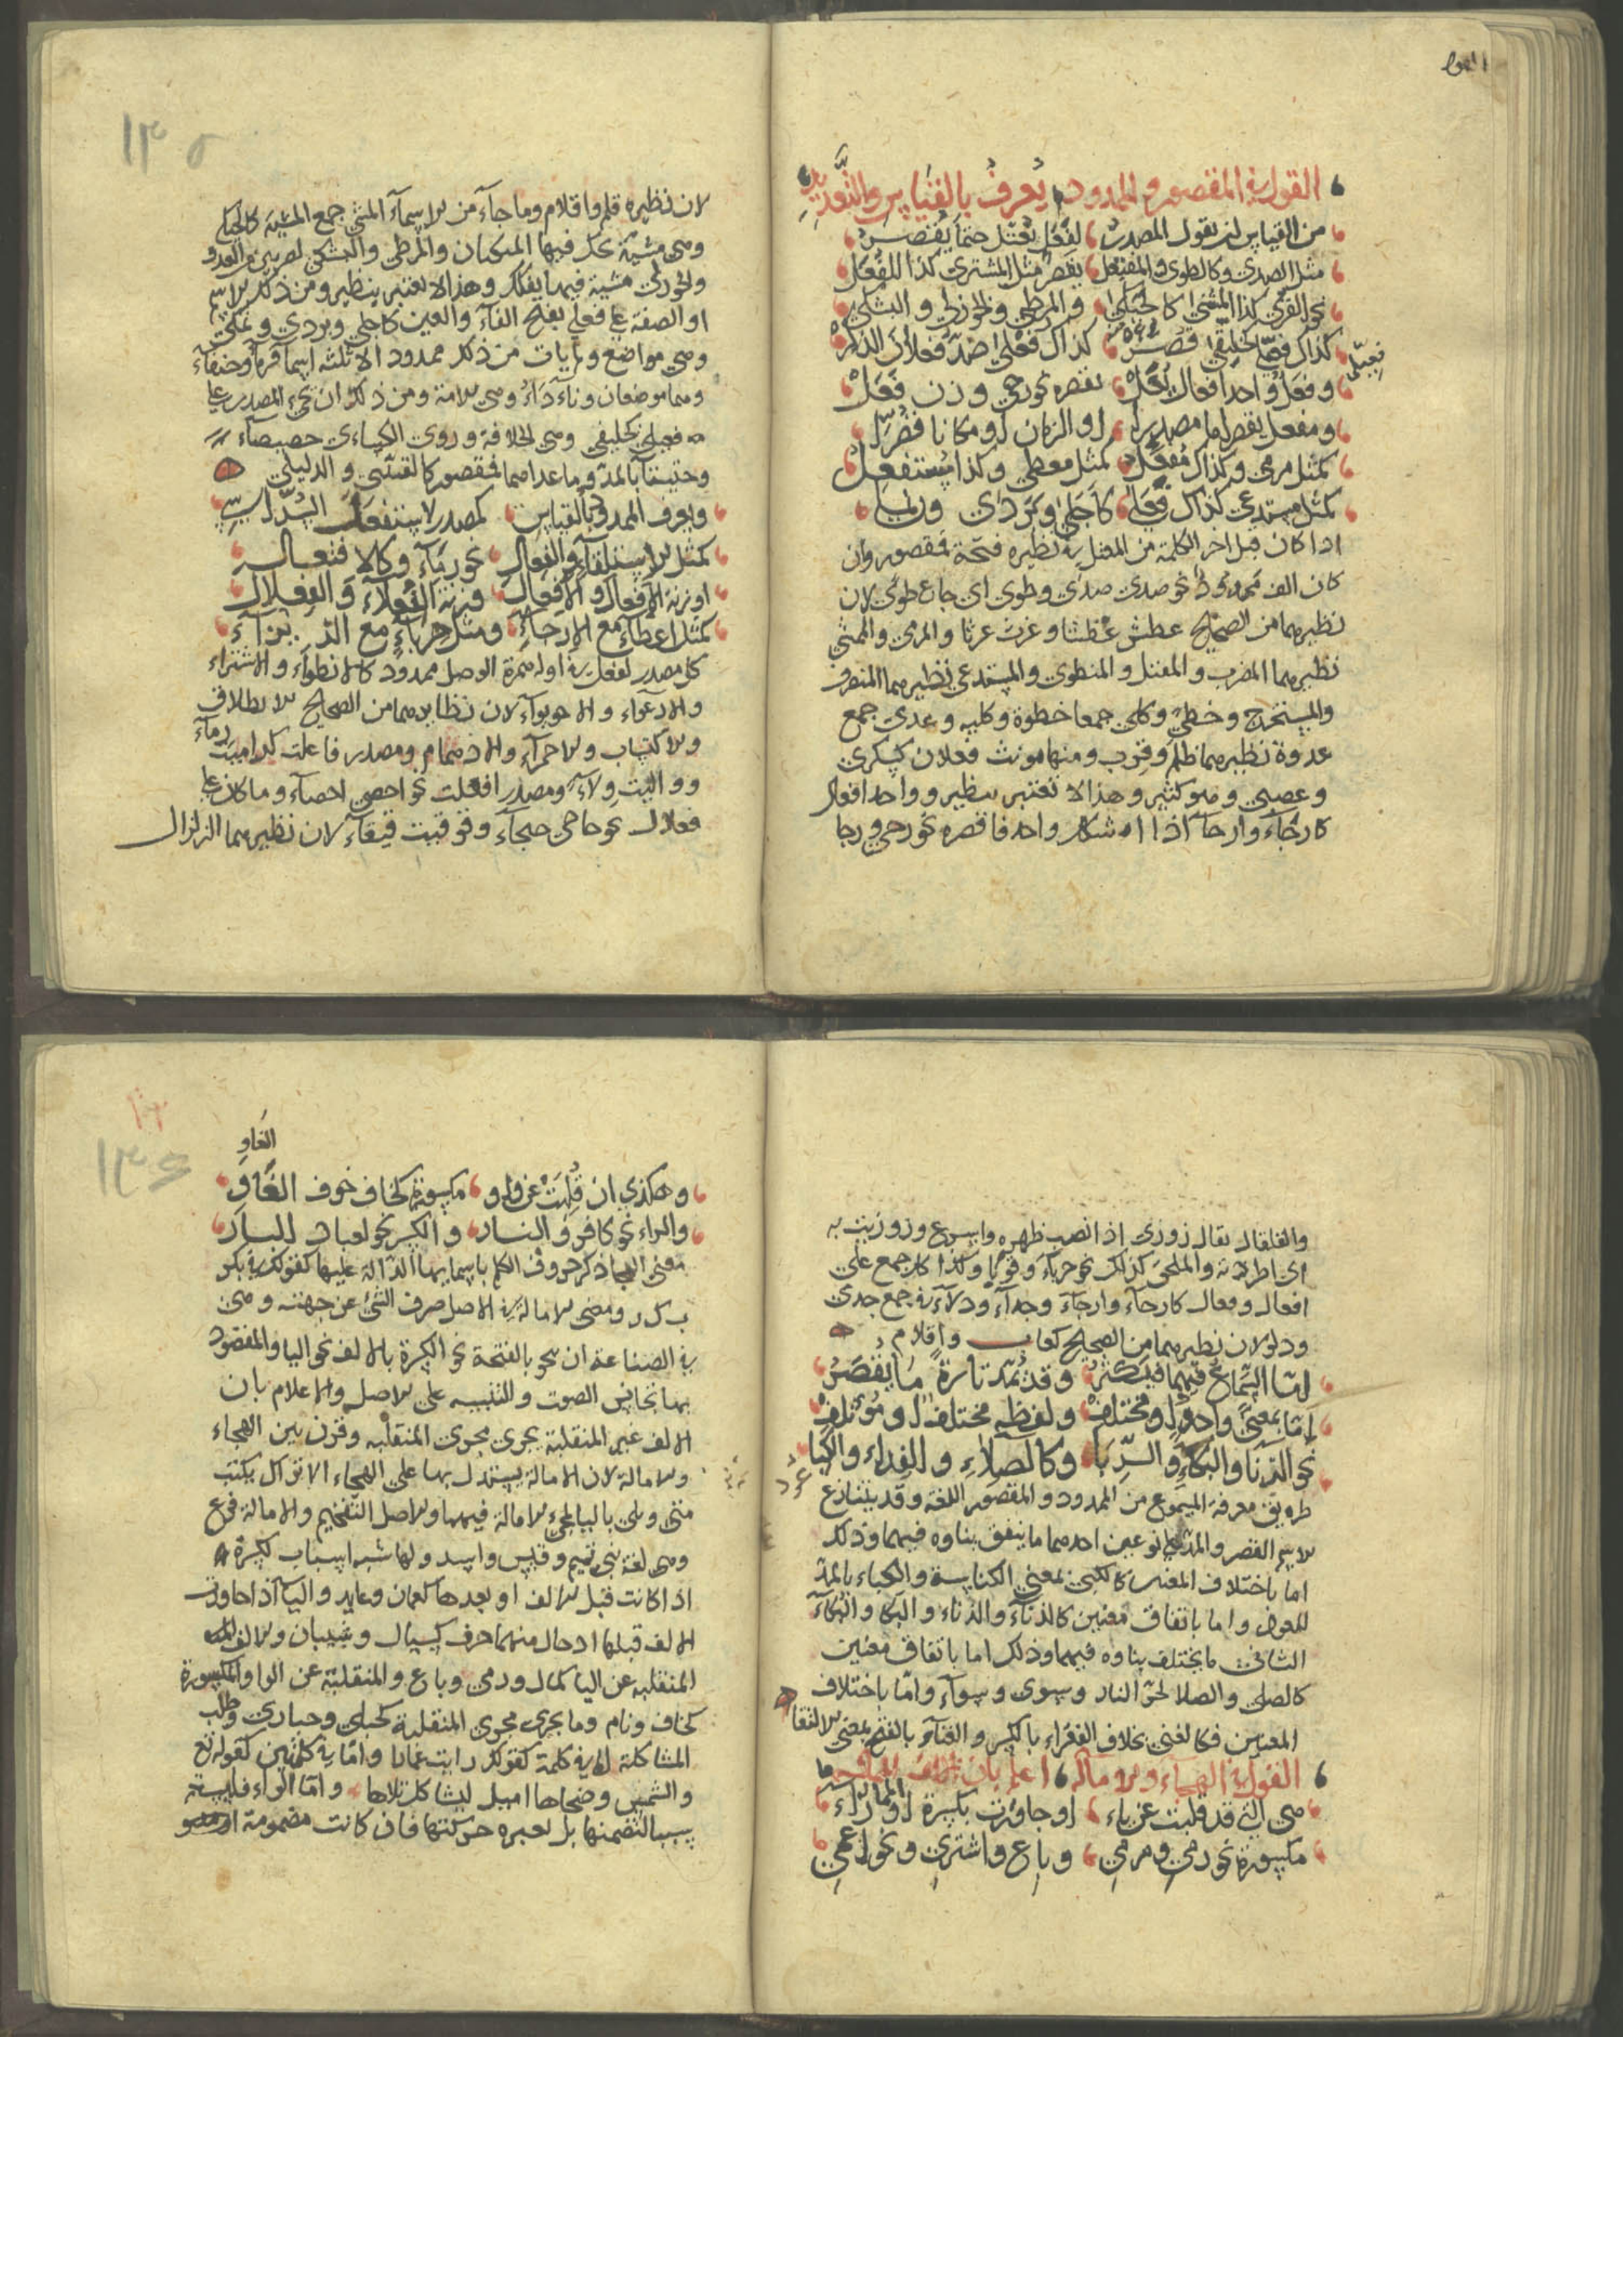 القول في المقصور والممدود يعرف بالقياس والتعديد
من القياس ان تقول المصدر لفعل يعتل حتما يقصر
مثل الصدى وكالطوى والمفتعل يقصر مثل المشترى كذا للفعل
نحو القرى كذا المشى كالجبلى والمرطى والخوزلى والبشكى
كذاك فعيلى خليفى قصر كذاك فعلى ضد فعلان الذكر
فعيلى
وفعل واحد افعال يعل نقصره نحو رحى وزن فعل
ومفعل يقصر اما مصدرا او الزمان او مكانا قصرا
كمثل مرمى وكذاك مفعل كمثل معطى وكذا مستفعل
كمثل مستدعى كذاك فعلى كاجلى وبردى وربما
اذا كان قبل اخر الكلمة من المعتل في نظيره فتحة فمقصور وان
كان الف فممدود نحو صدى صدى وطوى اى جاع طوى لان
نظيرهما من الصحيح عطش عطشا وغرث غرثا والمرمى والممشى
نظيرهما المضرب والمفتل والمنطوى والمستدعى نظيرهما المنصرف
والمستخرج وخطى وكلى جمعا خطوة وكليه وعدى جمع
عدوة نظيرهما ظلم وقرب ومنها مونث فعلان كسكرى
وعصبى وهو كثير وهذا لا تعتبر بنظير وواحد افعال
كارحاء وارجاء اذا شكل واحد فاقصره نحو رحى ورجا
لان نظيره قلم واقلام وما جاء من الاسماء المشى جمع المشية كالجبلى
وهى مشية يحك فيها المنكبان والمرطى والبشكى لضربين من العدو
والخوزلى مشية فيها يفكك وهذا لا يعتبر بنظير ومن ذلك الاسم
او الصفة على فعلى بفتح الفاء والعين كاجلى وبردى ونملى
وهى مواضع ولم يات من ذلك ممدود الا ثلثه اسما قرماء وجنفاء
وهما موضعان وثاء داء وهى الامة ومن ذلك ان يجىء المصدر على
فعيلى كخليفى وهى الخلافة وروى الكساءى خصيصاء
وحثيثاء بالمد وما عداهما فمقصور كالقتيتى والدليلى
ويعرف الممدود بالقياس كمصدر لاستفعل
كمثل الاستلقاء والفعال نحو رماء وكالافتعال
او زنة الافعال والافعال وزنة الفعلاء والفعلال
كمثل اعطاء مع الارجاء ومثل حرباء مع
كل مصدر لفعل في اوله همزة الوصل ممدود كالانطواء والاشتراء
والادعواء والاحوواء لان نظايرهما من الصحيح الانطلاق
والاكتساب والاحمرار والادهمام ومصدر فاعلت كراميت رماء
وواليت ولاء ومصدر افعلت نحو احصى احصاء وما كان على
فعلال نحو حاحى حيحاء وقوقيت قيقاء لان نظيرهما الزلزال
والقلقال يقال زوزى اذا نصب ظهره واسرع وزوزيت به
اى اطردته والملحق كذلك نحو حرباء وقوبا وكذا كل جمع على
افعال وفعال كارحاء وارجاء وجداء ودلاء في جمع جدى
ودلو لان نظيرهما من الصحيح كعاب واقلام
اما السماع فيهما فيكثر وقد يمد تارة ما يقصر
اما بمعنى واحد او مختلف ولفظه مختلف او موتلف
نحو الزنا والبكاء والربا وكالصلاء والفداء والكبا
طريق معرفة المسموع من الممدود والمقصور اللغة وقد يتنازع
الاسم القصر والمد على نوعين احدهما ما يتفق بناوه فيهما وذلك
اما باختلاف المعنى كالكبى بمعنى الكناسة والكباء بالمد
للعود واما باتفاق معنيين كالزناء والزنا والبكا والبكاء
الثانى ما يختلف بناوه فيهما وذلك اما باتفاق معنيين
كالصلى والصلا لحر النار وسوى وسواء واما باختلاف
المعنيين فكالغنى بخلاف الفقراء بالكسر والغناء بالفتح بمعنى الانتفا
القول في الهجاء والاماله اعلم بان
هى التى قد قلبت عن ياء او جاورت بكسرة او راء
مكسورة نحو رمى ومرمى وباع واشترى ونحو اعمى
الغاو
وهكذى ان قلبت عن واو مكسورة كخاف خوف الغاو
والراء نحو كافر والنار والكسر نحو لعباد البار
معنى الهجا ذكر حروف الكلم باسمايها الدالة عليها كقولك في بكر
ب ك ر ومعنى الاماله في الاصل صرف الشئ عن جهته وهى
في الصناعة ان ينحو بالفتحة نحو الكسرة بالالف نحو اليا والمقصود
بها تجانس الصوت والتنبيه على الاصل والاعلام بان
الالف غير المنقلبة يجرى مجرى المنقلبه وقرن بين الهجاء
والامالة لان الامالة يستدل بها على الهجاء الا تراك يكتب
متى وبلى باليا لمجئ الامالة فيهما والاصل التفخيم والامالة فرع
وهى لغة بنى تميم وقيس واسد ولها ستة اسباب كسرة
اذا كانت قبل الالف او بعدها كعمان وعابد والياء اذا جاورت
الالف قبلها او حال منهما حرف كسيال وشيبان والالف
المنقلبه عن اليا كمال ورمى وباع والمنقلبة عن الواو المكسورة
كخاف ونام وما يجرى مجرى المنقلبة كحبلى وحبارى وطلب
المشاكلة اما في كلمة كقولك رايت عمادا واما في كلمتين كقوله تع
والشمس وضحاها اميل ليشاكل تلاها واما الراء فليست
سببا لتضمنها بل لغيره حركتها فان كانت مضمومة او